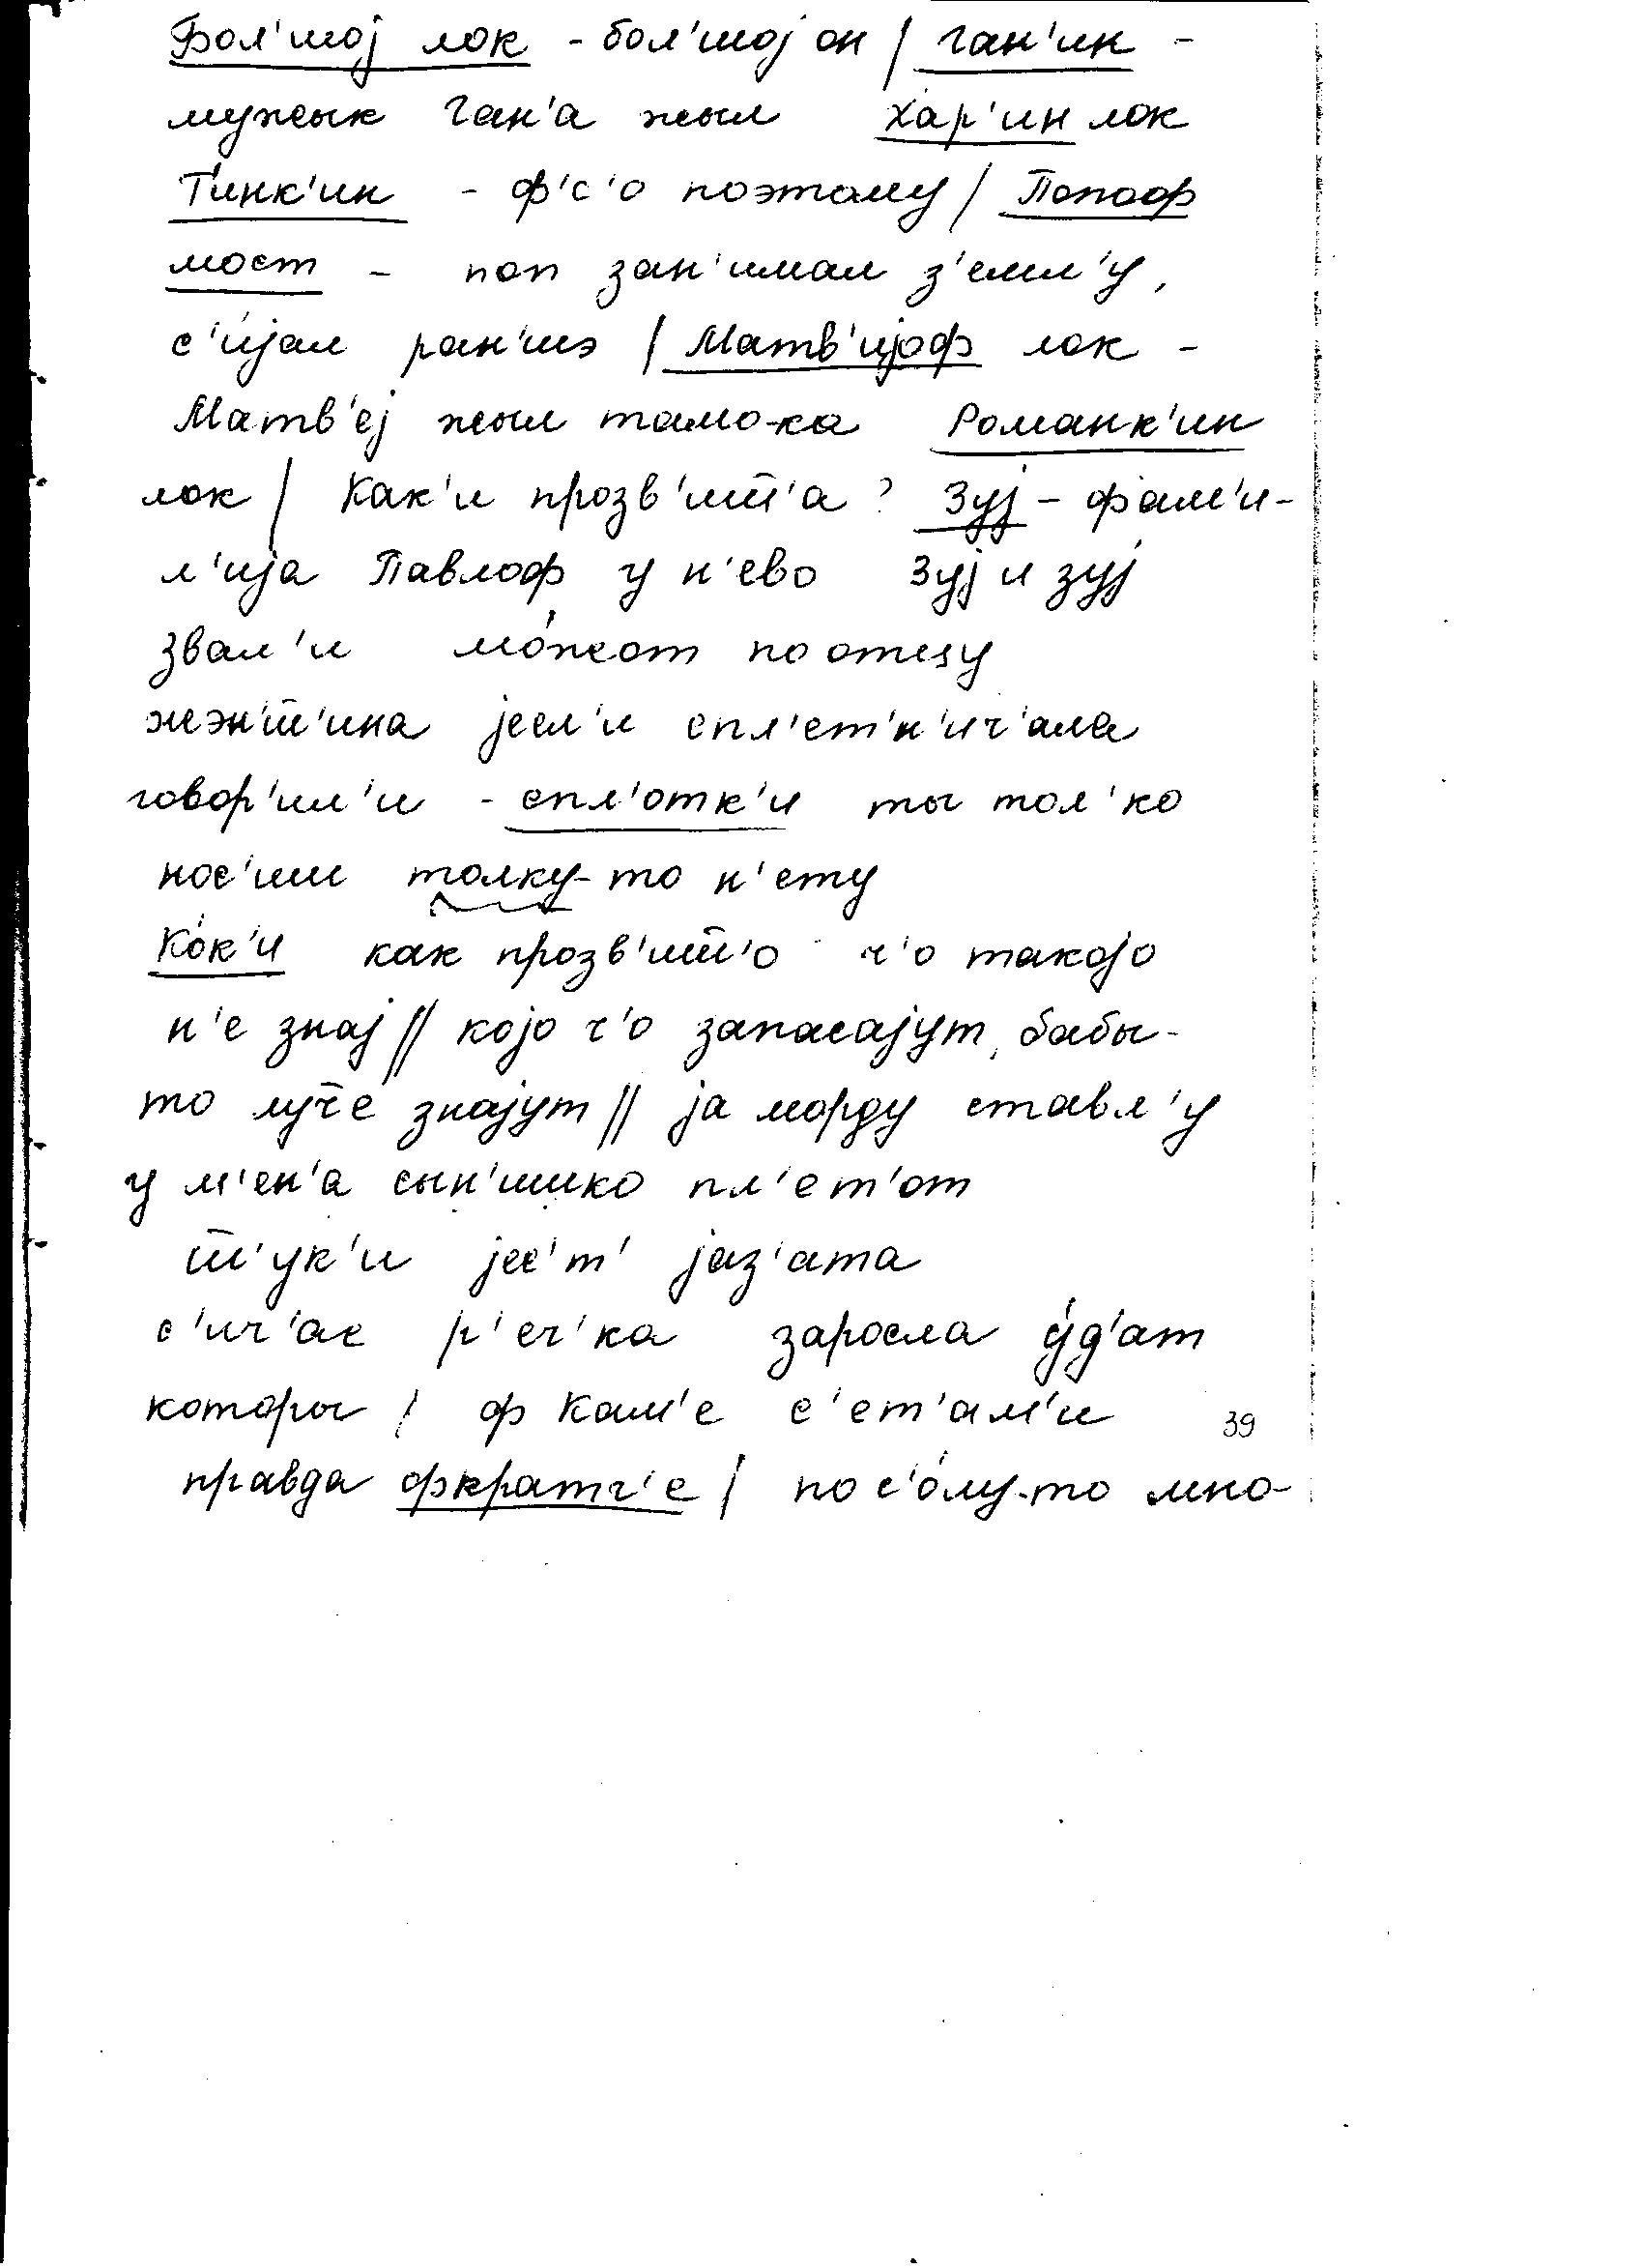 Бол'шој лок - бол'шој он / ган'ин -
мужык Ган'а жыл Хар'ин лок
Т'инк'ин - ф'с'о поэтому / Попоф
мост - поп зан'имал з'емл'у,
с'ијал ран'шэ / Матв'ијоф лок -
Матв'еј жыл тамо-ка Романк'ин
лок / Как'и прозв'иш̅'а? Зуј - фам'и-
л'ија Павлоф у н'ево Зуј и зуј
звал'и мо́жот по отцу
жэнш̅'ина јесл'и спл'ет'н'ич'ала
говор'ил'и - спл'отк'и ты тол'ко
нос'иш толку-то н'ету
Ко́к'и как прозв'иш̅'о ч'о такојо
н'е знај // којо ч'о запасајут, бабы-
то луч̅'е знајут // ја морду ставл'у
у м'ен'а сын'ишко пл'ет'от
ш̅'ук'и јес'т' јаз'ата
с'ич'ас р'еч'ка заросла у́д'ат
которы / ф Кам'е с'ет'ам'и
39
правда фкратч'е / по с'о́лу-то мно-